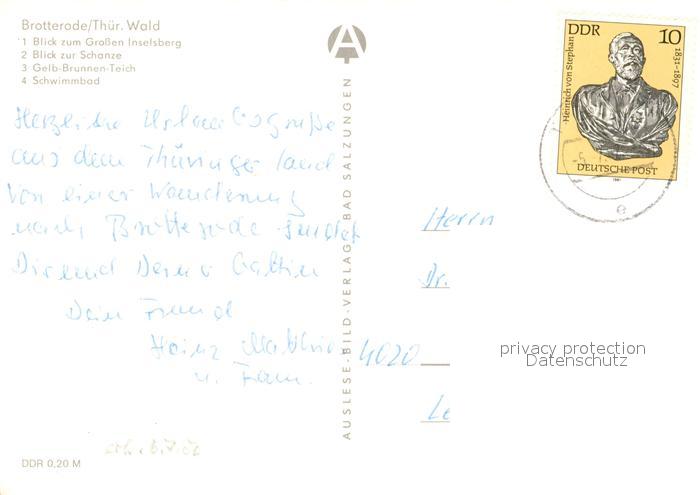 Brotterode/Thür. Wald
1 Blick zum Großen Inselsberg
2 Blick zur Schanze
3 Gelb-Brunnen-Teich
4 Schwimmbad
Herzliche Urlaubsgrüße
aus dem Thüringer Land
von einer Wanderung
nach Brotterode sendet
Dir und Deiner Gattin
Dein Freund
Heinz
u. Fam.
DDR 0,20 M
AUSLESE-BILD-VERLAG BAD SALZUNGEN
DDR 10
Heinrich von Stephan
1831-1897
DEUTSCHE POST
1981
Herrn
Dr.
4020
Le
privacy protection
Datenschutz